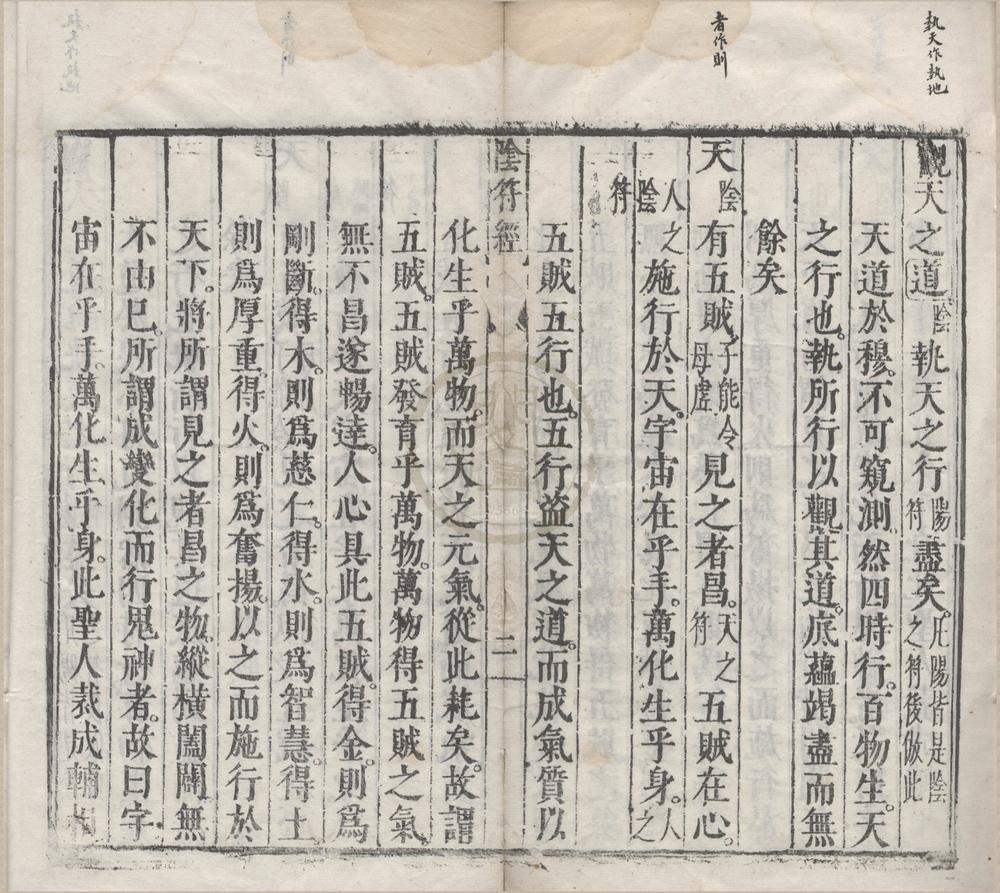 執天作執地
者作則
觀天之道陰執天之行陽符盡矣。凡陽皆是陰之符後倣此
天道於穆。不可窺測。然四時行。百物生。天
之行也。執所行以觀其道。底蘊竭盡而無
餘矣
天陰有五賊。子能令母虛見之者昌。天之符五賊在心。
人陰符之施行於天。宇宙在乎手。萬化生乎身。人之
五賊五行也。五行盜天之道。而成氣質以
陰符經
二
化生乎萬物。而天之元氣。從此耗矣。故謂
五賊。五賊發育乎萬物。萬物得五賊之氣
無不昌遂暢達。人心具此五賊。得金。則爲
剛斷。得木。則爲慈仁。得水。則爲智慧。得土
則爲厚重。得火。則爲奮揚。以之而施行於
天下。將所謂見之者昌之物。縱橫闔闢無
不由巳。所謂成變化而行鬼神者。故曰宇
宙在乎手。萬化生乎身。此聖人裁成輔相